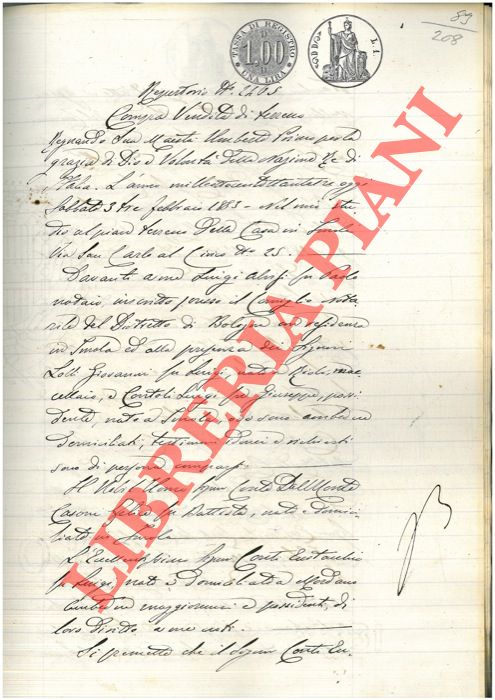 89
208
TASSA DI REGISTRO
1.00
UNA LIRA
L. 1.
Repertorio N° 2205
Compra Vendita di terreno
Regnando Sua Maestà Umberto Primo per la
grazia di Dio e Volontà della Nazione Re di
Italia. L'anno milleottocentottantatre oggi
Sabbato 3 tre febbraio 1883 nel mio Stu
dio al pian terreno della Casa in Imola
Via San Carlo al Civico N° 25.
Davanti a me Luigi Alvisi fu Paolo
notaio inscritto presso il Consiglio nota
rile del Distretto di Bologna con residenza
in Imola ed alla presenza dei Signori
Lolli Giovanni fu Luigi, nato a mac
cellaio, e Contoli Luigi fu Giuseppe, possi
dente, nato a Imola, ove sono ambedue
domiciliati, testimoni idonei e richiesti
sono di persona comparsi
Il Nobil Uomo Signor Conte Dal Monte
Casoni fu Battista, nato e domici
liato in Imola
L'Eccellentissimo Signor Conti Eustachio
fu Luigi, nato e domiciliato a Mordano
ambedue maggiorenni e possidenti, di
loro diritto, a me noti.
Si premette che il Signor Conti Eu-
LIBRERIA PIANI